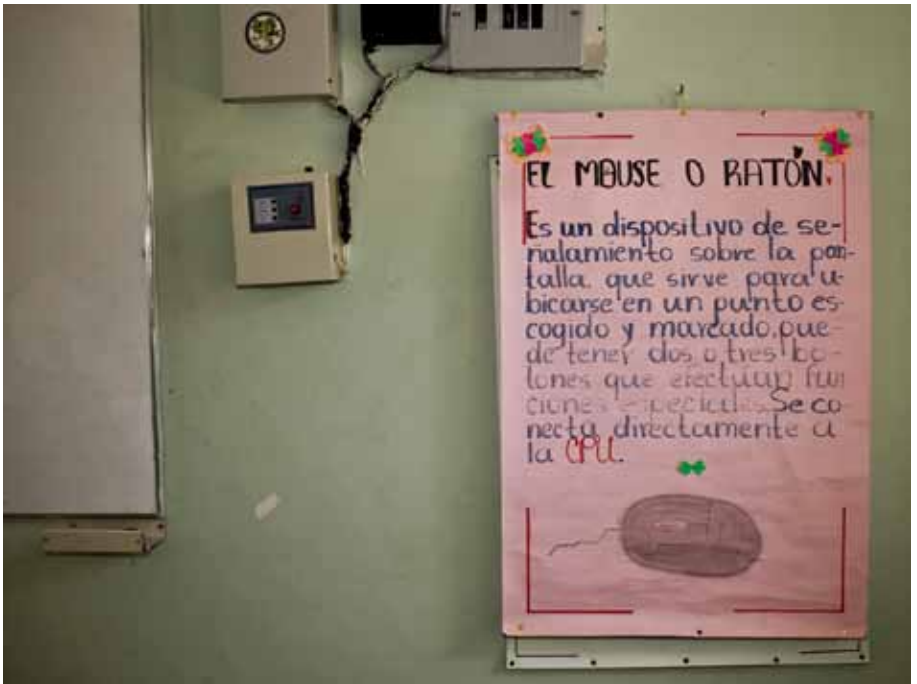 EL MOUSE O RATÓN.
Es un dispositivo de se-
ñalamiento sobre la pan-
talla que sirve para u-
bicarse en un punto es-
cogido y marcado, pue-
de tener dos o tres bo-
tones que efectuan fun
ciones especiales. Se co
necta directamente a
la CPU.